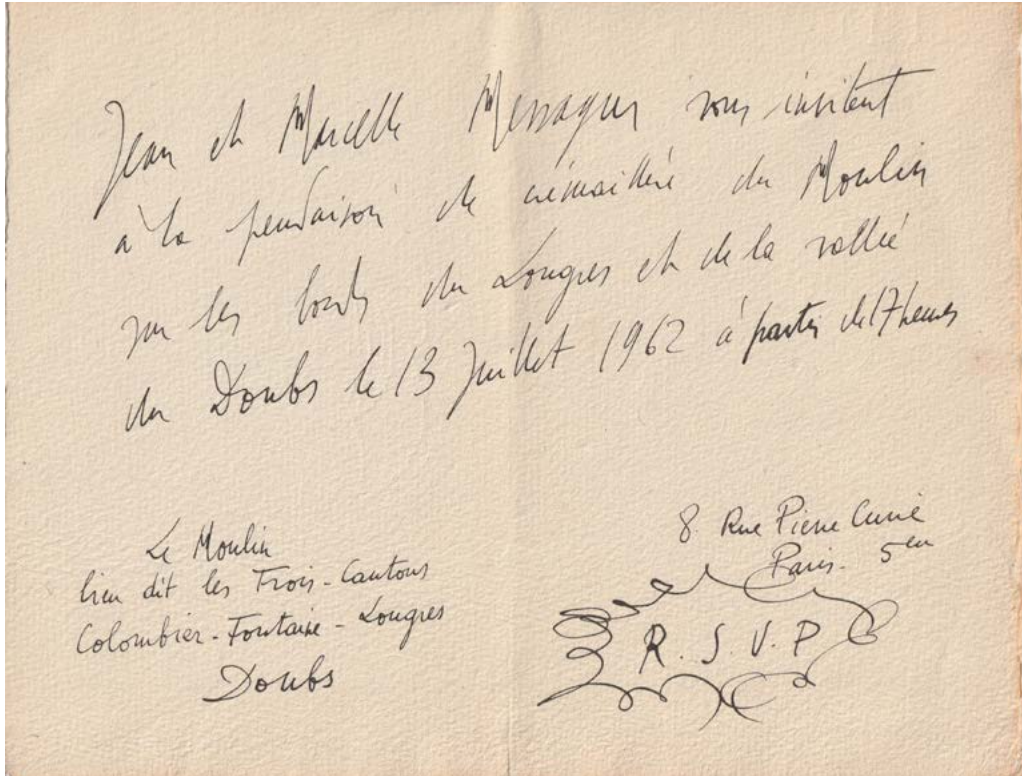 Jean et Marcelle Messagier vous invitent
à la pendaison de crémaillère du Moulin
sur les bords du Lougres et de la vallée
du Doubs le 13 Juillet 1962 à partir de 17 heures
Le Moulin
lieu dit les Trois-Cantons
Colombier-Fontaine - Lougres
Doubs
8 Rue Pierre Curie
Paris - 5em
R. S. V. P